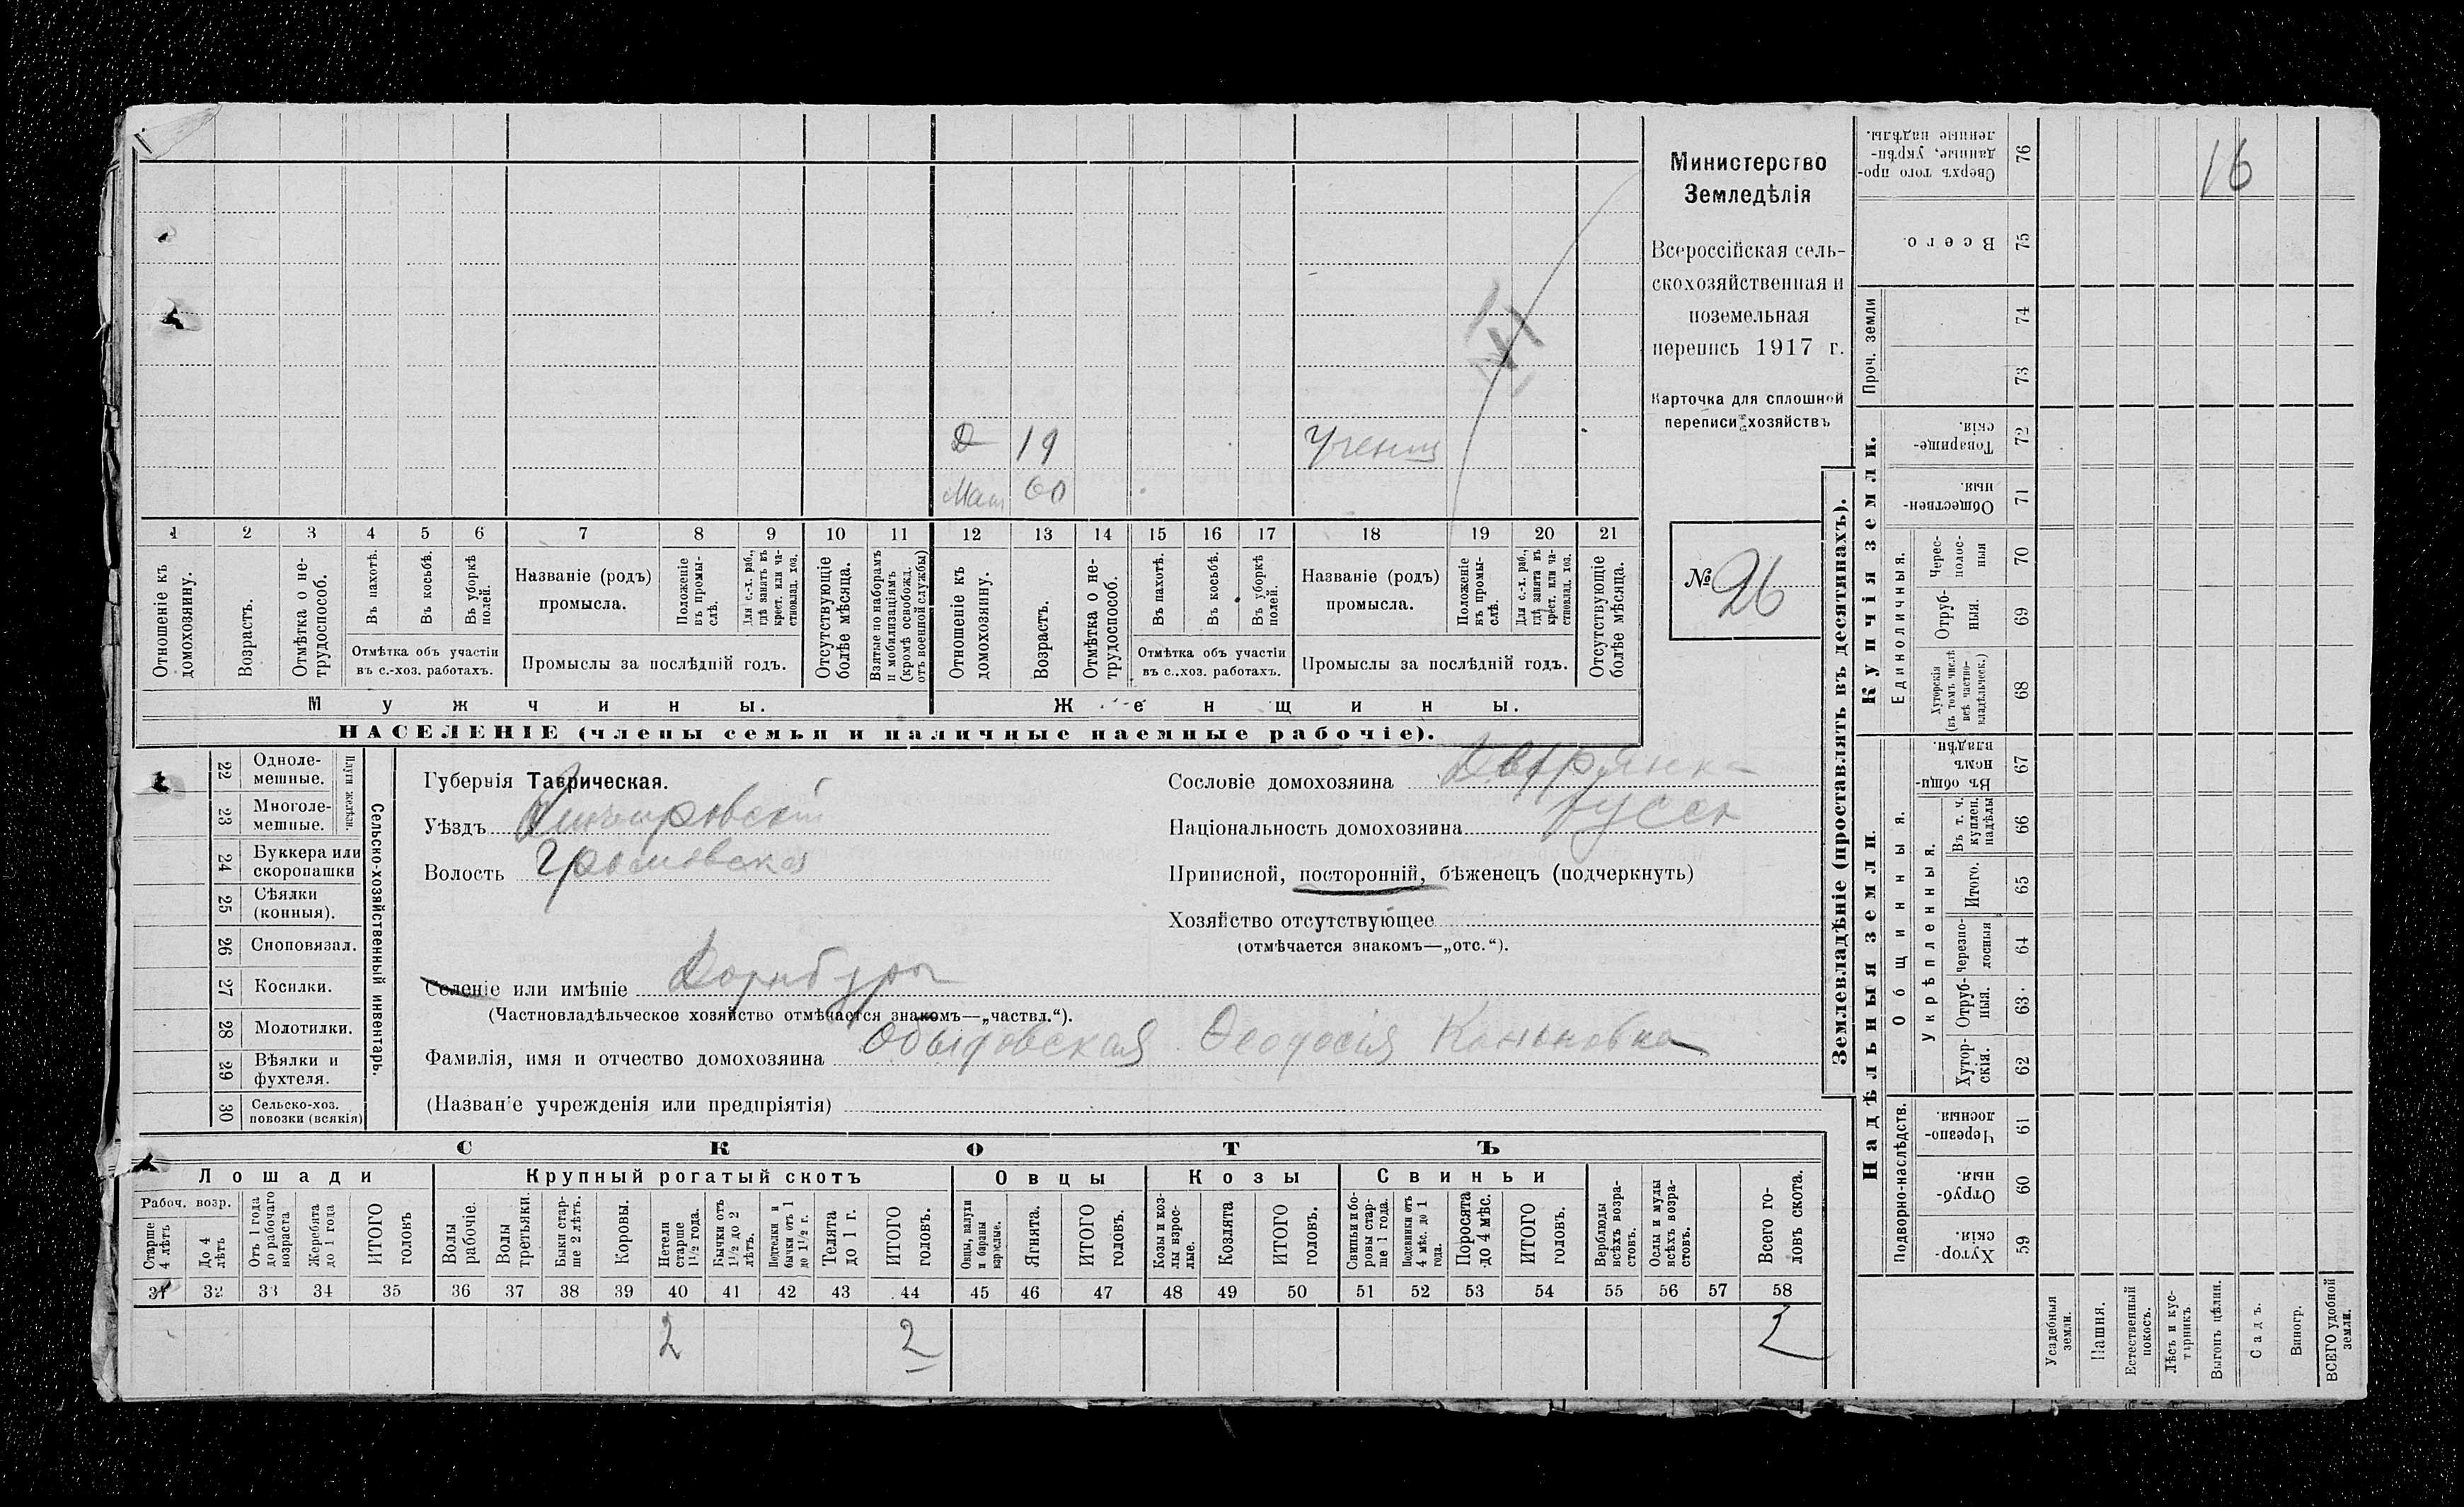 Министерство
Земледѣлія
Всероссійская сель-
скохозяйственная и
поземельная
перепись 1917 г.
Карточка для сплошной
переписи хозяйствъ
№ 26
Д 19 Учениц
Мат 60
1 2 3 4 5 6 7 8 9 10 11 12 13 14 15 16 17 18 19 20 21
Отношеніе къ домохозяину.
Возрастъ.
Отмѣтка о не-трудоспособ.
Въ пахотѣ.
Въ косьбѣ.
Въ уборкѣ полей.
Отмѣтка объ участіи въ с.-хоз. работахъ.
Названіе (родъ) промысла.
Положеніе въ промы-слѣ.
Для с.-х. раб., гдѣ занятъ въ крест. или ча-стновлад. хоз.
Промыслы за послѣдній годъ.
Отсутствующіе болѣе мѣсяца.
Взятые по наборамъ и мобилизаціямъ (кромѣ освобожд. отъ военной службы)
Отношеніе къ домохозяину.
Возрастъ.
Отмѣтка о не-трудоспособ.
Въ пахотѣ.
Въ косьбѣ.
Въ уборкѣ полей.
Отмѣтка объ участіи въ с..хоз. работахъ.
Названіе (родъ) промысла.
Положеніе въ промы-слѣ.
Для с.-х. раб., гдѣ занята въ крест. или ча-стновлад. хоз.
Промыслы за послѣдній годъ.
Отсутствующіе болѣе мѣсяца.
Мужчины. Женщины.
НАСЕЛЕНІЕ (члены семьи и наличные наемные рабочіе).
Сельско-хозяйственный инвентарь.
Плуги желѣзн.
22 Одноле-мешные.
23 Многоле-мешные.
24 Буккера или скоропашки
25 Сѣялки (конныя).
26 Сноповязал.
27 Косилки.
28 Молотилки.
29 Вѣялки и фухтеля.
30 Сельско-хоз. повозки (всякія)
Губернія Таврическая.
Уѣздъ
Волость Громовская
Селеніе или имѣніе Дорнбургъ
(Частновладѣльческое хозяйство отмѣчается знакомъ—„частвл.“).
Фамилія, имя и отчество домохозяина Обыдовская Ѳеодосія Кононовна
(Названіе учрежденія или предпріятія)
Сословіе домохозяина Дворянка
Національность домохозяина русск
Приписной, посторонній, бѣженецъ (подчеркнуть)
Хозяйство отсутствующее
(отмѣчается знакомъ—„отс.“).
СКОТЪ
Лошади Крупный рогатый скотъ Овцы Козы Свиньи
Рабоч. возр.
Старше 4 лѣтъ
До 4 лѣтъ
Отъ 1 года до рабочаго возраста
Жеребята до 1 года
ИТОГО головъ
Волы рабочіе.
Волы третьяки.
Быки стар-ше 2 лѣтъ.
Коровы.
Нетели старше 1½ года.
Бычки отъ 1½ до 2 лѣтъ.
Подтелки и бычки отъ 1 до 1½ г.
Телята до 1 г.
ИТОГО головъ.
Овцы, валухи и бараны взрослые.
Ягнята.
ИТОГО головъ.
Козы и коз-лы взрос-лые.
Козлята
ИТОГО головъ.
Свиньи и бо-ровы стар-ше 1 года.
Подсвинки отъ 4 мѣс. до 1 года.
Поросята до 4 мѣс.
ИТОГО головъ.
Верблюды всѣхъ возра-стовъ.
Ослы и мулы всѣхъ возра-стовъ.
Всего го-ловъ скота.
31 32 33 34 35 36 37 38 39 40 41 42 43 44 45 46 47 48 49 50 51 52 53 54 55 56 57 58
2 2 2
Землевладѣніе (проставлять въ десятинахъ).
Купчія земли.
Надѣльныя земли.
Сверхъ того про-данные, укрѣп-ленные надѣлы. 76
16
Всего. 75
Проч. земли 74 73
Товарище-скія. 72
Обществен-ныя. 71
Единоличныя.
Черес-полос-ныя 70
Отруб-ныя. 69
Хуторскія (въ томъ числѣ всѣ частно-владѣльческ.) 68
Общинныя.
Въ общи-номъ владѣн. 67
Укрѣпленныя.
Въ т. ч. куплен. надѣлы 66
Итого. 65
Черезпо-лосныя 64
Отруб-ныя. 63
Хутор-скія. 62
Подворно-наслѣдств.
Черезпо-лосныя. 61
Отруб-ныя. 60
Хутор-скія. 59
Усадебныя земли.
Пашня.
Естественный покосъ.
Лѣсъ и кус-тарникъ.
Выгонъ цѣлин.
Садъ.
Виногр.
ВСЕГО удобной земли.